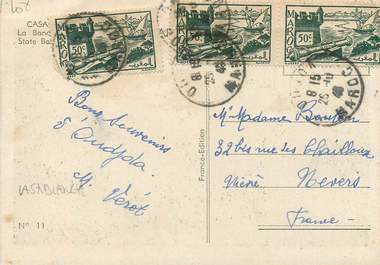 CASA
La Banq
State Ba
MAROC
50c
MAROC
50c
MAROC
50c
OUJDA
8H15
25-10
MAROC
Bons Souvenirs
d'Oudjda
M. Vérot
CASABLANCA
N° 11
France-Edition
Mr Madame
32 bis rue des
Nièvre Nevers
France